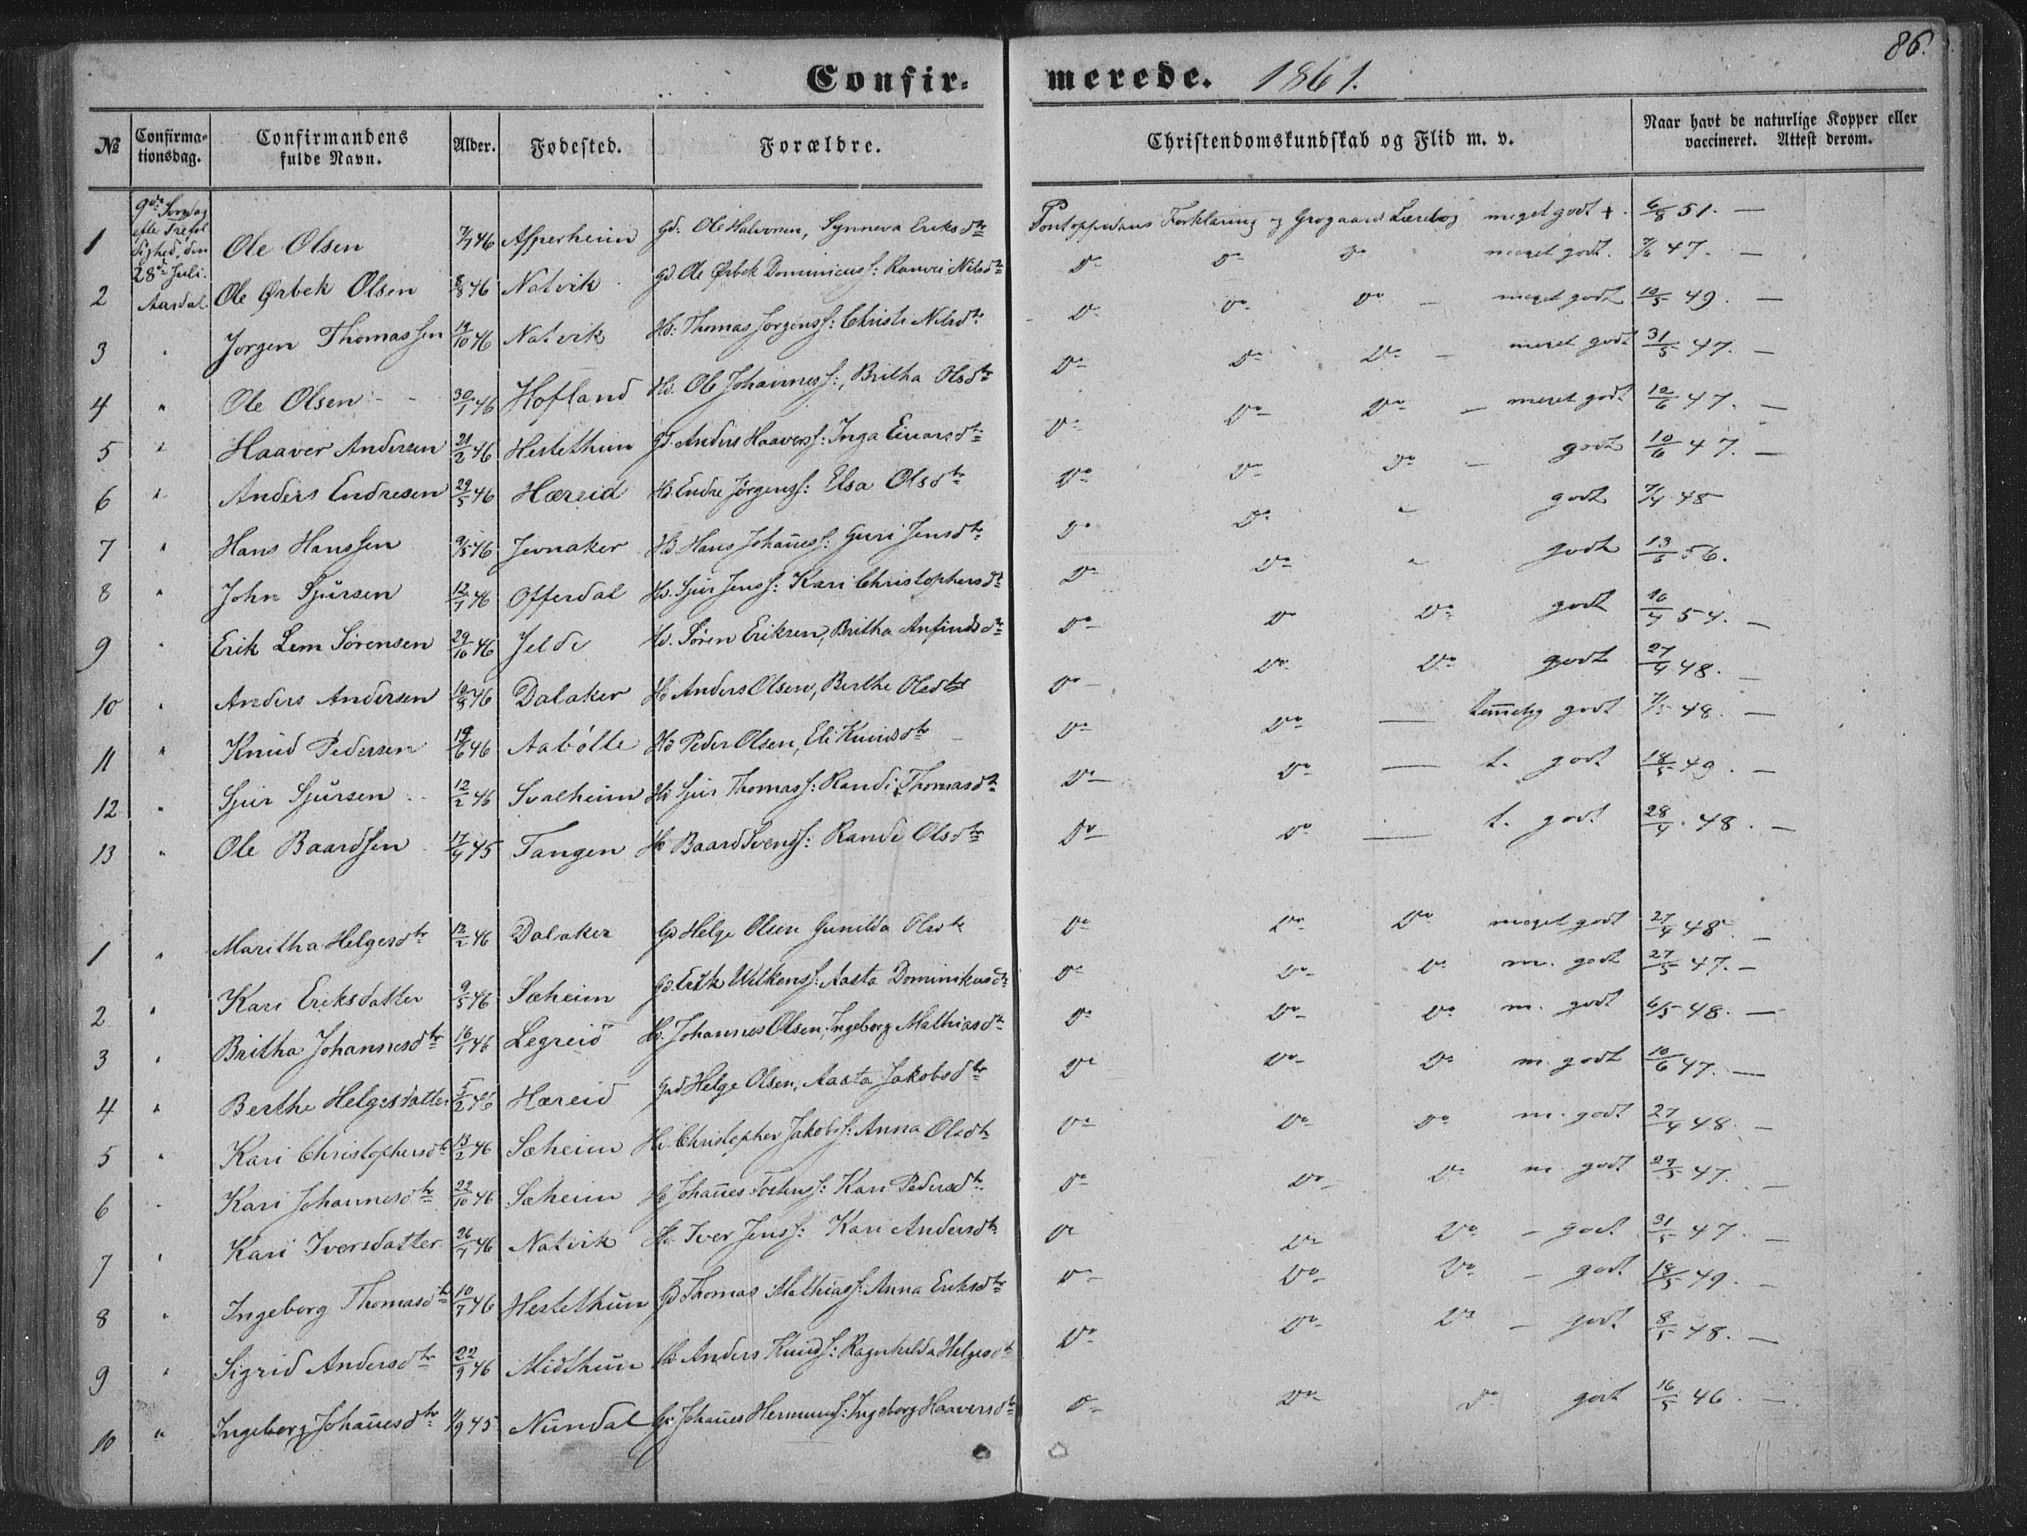 86.
Confir- merede. 1861.
№ Confirma-tionsdag. Confirmandens fulde Navn. Alder. Fødested. Forældre. Christendomskundskab og Flid m. v. Naar havt de naturlige Kopper eller vaccineret. Attest derom.
9de Søndag
efter Trefol
dighed, den
28de Juli.
Aardal.
1 Ole Olsen 7/7 46 Asperheim Gd. Ole Halvorsen, Synneva Eriksdtr Pontoppidans Forklaring og Grogaards Læsebog meget godt +. 6/8 51. —
2 Ole Ørbek Olsen 8/8 46 Natvik Gd. Ole Ørbek Dominicuss: Ranvei Nilsdtr Do Do Do meget godt. 7/6 47. —
3 " Jorgen Thomassen 19/10 46 Natvik Hd. Thomas Jorgenss: Christi Nilsdtr Do Do Do — meget godt 10/5 49. —
4 " Ole Olsen 30/1 46 Hofland Hd. Ole Johanness:, Britha Olsdtr Do Do Do — meget godt 31/5 47. —
5 " Haaver Andersen 21/2 46 Hestethun Gd. Anders Haavers: Inga Einarsdtr Do Do Do — meget godt 10/6 47. —
6 " Anders Endresen 29/5 46 Hæreid Hd. Endre Jørgenss: Elsa Olsdtr Do Do Do — godt 10/6 47. —
7 " Hans Hanssen 9/5 46 Jevnaker Hd. Hans Johañess: Guri Jensdtr Do Do " godt 7/4 48
8 " John Sjursen 12/1 46 Offerdal Hd. Sjur Jenss: Kari Christophersdtr Do Do " godt 13/6 56.
9 " Erik Lem Sørensen 29/10 46 Jelde Hd. Søren Eriksen, Britha Anfindsdtr Do Do Do godt 16/4 54. —
10 " Anders Andersen 10/8 46 Dalaker Hd Anders Olsen, Berthe Olsdtr Do Do Do godt 27/4 48. —
11 " Knud Pedersen 19/6 46 Aabølle Hd Peder Olsen, Eli Knudsdtr Do Do — temelig godt 7/5 48. —
12 " Sjur Sjursen 12/2 46 Svalheim Hd Sjur Thomass: Randi Thomasdtr Do Do — t. godt 18/5 49. —
13 " Ole Baardsen 17/4 45 Tangen Hd Baard Svends: Randi Olsdtr Do Do — t. godt 28/4 48. —
1 " Maritha Helgesdtr 12/2 46 Dalaker Gd Helge Olsen Gunilda Olsdtr Do Do Do meget godt 27/4 48. —
2 " Kari Eriksdatter 9/5 46 Sæheim Gd. Erik Wilkenss: Aasta Dominikusdtr Do Do Do m. godt 27/5 47. —
3 " Britha Johannesdtr 16/1 46 Legreid Hd. Johannes Olsen, Ingeborg Mathiasdtr Do Do Do m. godt 6/5 48. —
4 " Berthe Helgesdatter 5/2 46 Hæreid Gd Helge Olsen, Aasta Jakobsdtr Do Do Do m. godt 10/6 47. —
5 " Kari Christophersdtr 13/2 46 Sæheim Hd Christopher Jakobs: Anna Olsdtr Do Do Do m. godt 27/4 48. —
6 " Kari Johannesdtr 22/10 46 Sæheim Hd Johañes Tostenss: Kari Pedersdtr Do Do Do m. godt 27/5 47. —
7 " Kari Iversdatter 26/1 46 Natvik Hd. Iver Jenss: Kari Andersdtr Do Do Do — godt 31/5 47. —
8 " Ingeborg Thomasdtr 10/7 46 Hestethun Gd Thomas Mathiass: Anna Eriksdtr Do Do Do — godt 18/5 49. —
9 " Sigrid Andersdtr 22/9 46 Midthun Hd Anders Knuds: Ragnhilda Helgesdtr Do Do Do — godt 8/5 48. —
10 " Ingeborg Johañesdtr 11/9 45 Nundal Gd. Johañes Hermunds: Ingeborg Haaversdtr Do Do Do godt 16/5 46. —